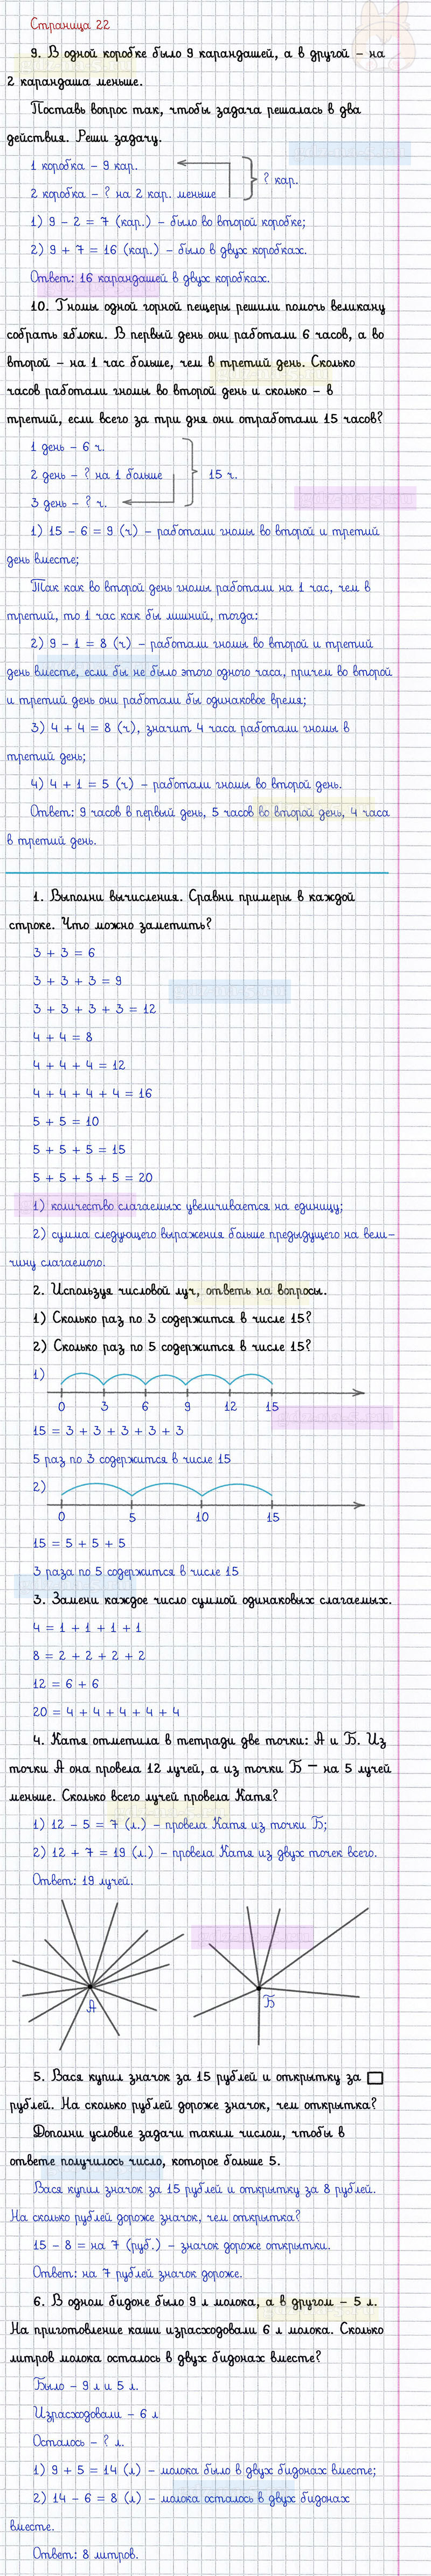 Страница 22
9. В одной коробке было 9 карандашей, а в другой – на
2 карандаша меньше.
Поставь вопрос так, чтобы задача решалась в два
действия. Реши задачу.
1 коробка – 9 кар.
2 коробка – ? на 2 кар. меньше
? кар.
1) 9 – 2 = 7 (кар.) – было во второй коробке;
2) 9 + 7 = 16 (кар.) – было в двух коробках.
Ответ: 16 карандашей в двух коробках.
10. Гномы одной горной пещеры решили помочь великану
собрать яблоки. В первый день они работали 6 часов, а во
второй – на 1 час больше, чем в третий день. Сколько
часов работали гномы во второй день и сколько – в
третий, если всего за три дня они отработали 15 часов?
1 день – 6 ч.
2 день – ? на 1 больше
15 ч.
3 день – ? ч.
1) 15 – 6 = 9 (ч) – работали гномы во второй и третий
день вместе;
Так как во второй день гномы работали на 1 час, чем в
третий, то 1 час как бы лишний, тогда:
2) 9 – 1 = 8 (ч) – работали гномы во второй и третий
день вместе, если бы не было этого одного часа, причем во второй
и третий день они работали бы одинаковое время;
3) 4 + 4 = 8 (ч), значит 4 часа работали гномы в
третий день;
4) 4 + 1 = 5 (ч) – работали гномы во второй день.
Ответ: 9 часов в первый день, 5 часов во второй день, 4 часа
в третий день.
1. Выполни вычисления. Сравни примеры в каждой
строке. Что можно заметить?
3 + 3 = 6
3 + 3 + 3 = 9
3 + 3 + 3 + 3 = 12
4 + 4 = 8
4 + 4 + 4 = 12
4 + 4 + 4 + 4 = 16
5 + 5 = 10
5 + 5 + 5 = 15
5 + 5 + 5 + 5 = 20
1) количество слагаемых увеличивается на единицу;
2) сумма следующего выражения больше предыдущего на вели–
чину слагаемого.
2. Используя числовой луч, ответь на вопросы.
1) Сколько раз по 3 содержится в числе 15?
2) Сколько раз по 5 содержится в числе 15?
1)
0 3 6 9 12 15
15 = 3 + 3 + 3 + 3 + 3
5 раз по 3 содержится в числе 15
2)
0 5 10 15
15 = 5 + 5 + 5
3 раза по 5 содержится в числе 15
3. Замени каждое число суммой одинаковых слагаемых.
4 = 1 + 1 + 1 + 1
8 = 2 + 2 + 2 + 2
12 = 6 + 6
20 = 4 + 4 + 4 + 4 + 4
4. Катя отметила в тетради две точки: А и Б. Из
точки А она провела 12 лучей, а из точки Б – на 5 лучей
меньше. Сколько всего лучей провела Катя?
1) 12 – 5 = 7 (л.) – провела Катя из точки Б;
2) 12 + 7 = 19 (л.) – провела Катя из двух точек всего.
Ответ: 19 лучей.
А
Б
5. Вася купил значок за 15 рублей и открытку за □
рублей. На сколько рублей дороже значок, чем открытка?
Дополни условие задачи таким числом, чтобы в
ответе получилось число, которое больше 5.
Вася купил значок за 15 рублей и открытку за 8 рублей.
На сколько рублей дороже значок, чем открытка?
15 – 8 = на 7 (руб.) – значок дороже открытки.
Ответ: на 7 рублей значок дороже.
6. В одном бидоне было 9 л молока, а в другом – 5 л.
На приготовление каши израсходовали 6 л молока. Сколько
литров молока осталось в двух бидонах вместе?
Было – 9 л и 5 л.
Израсходовали – 6 л
Осталось – ? л.
1) 9 + 5 = 14 (л) – молока было в двух бидонах вместе;
2) 14 – 6 = 8 (л) – молока осталось в двух бидонах
вместе.
Ответ: 8 литров.